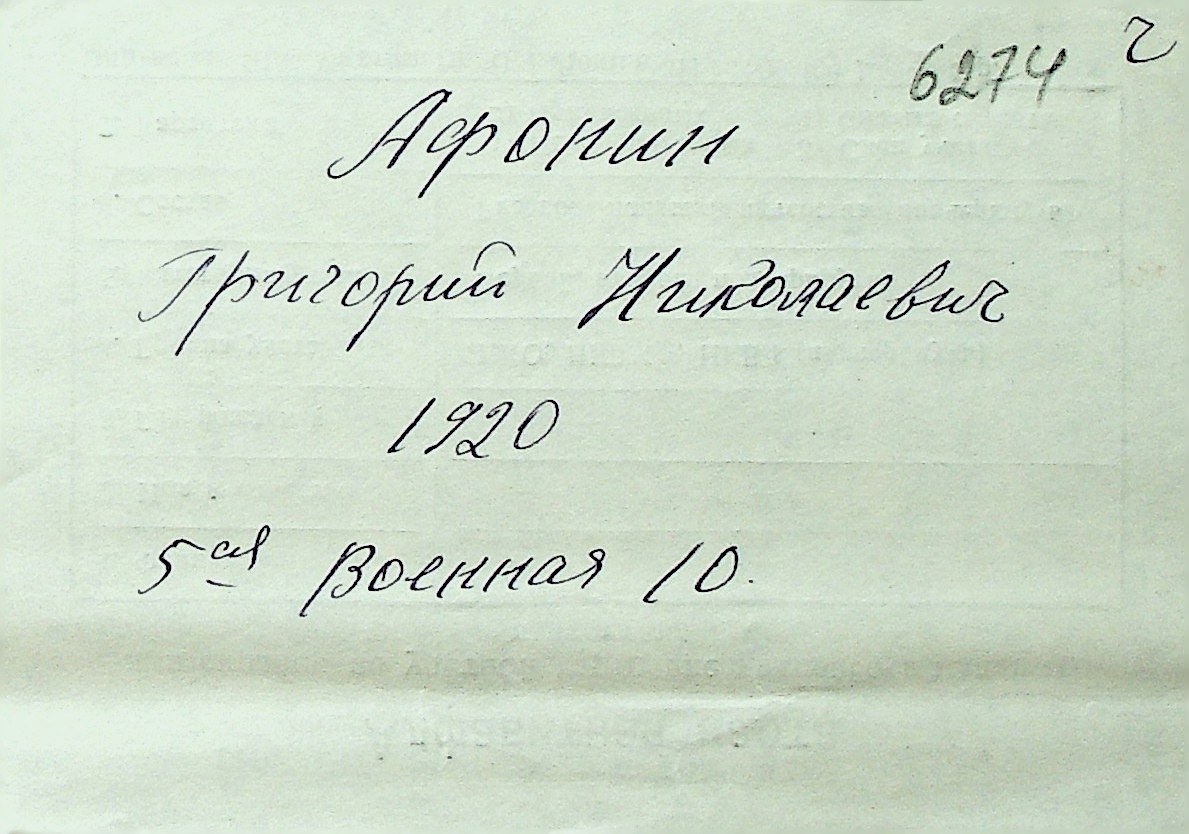 6274 ч
Афонин
Григорий Николаевич
1920
5ая Военная 10.